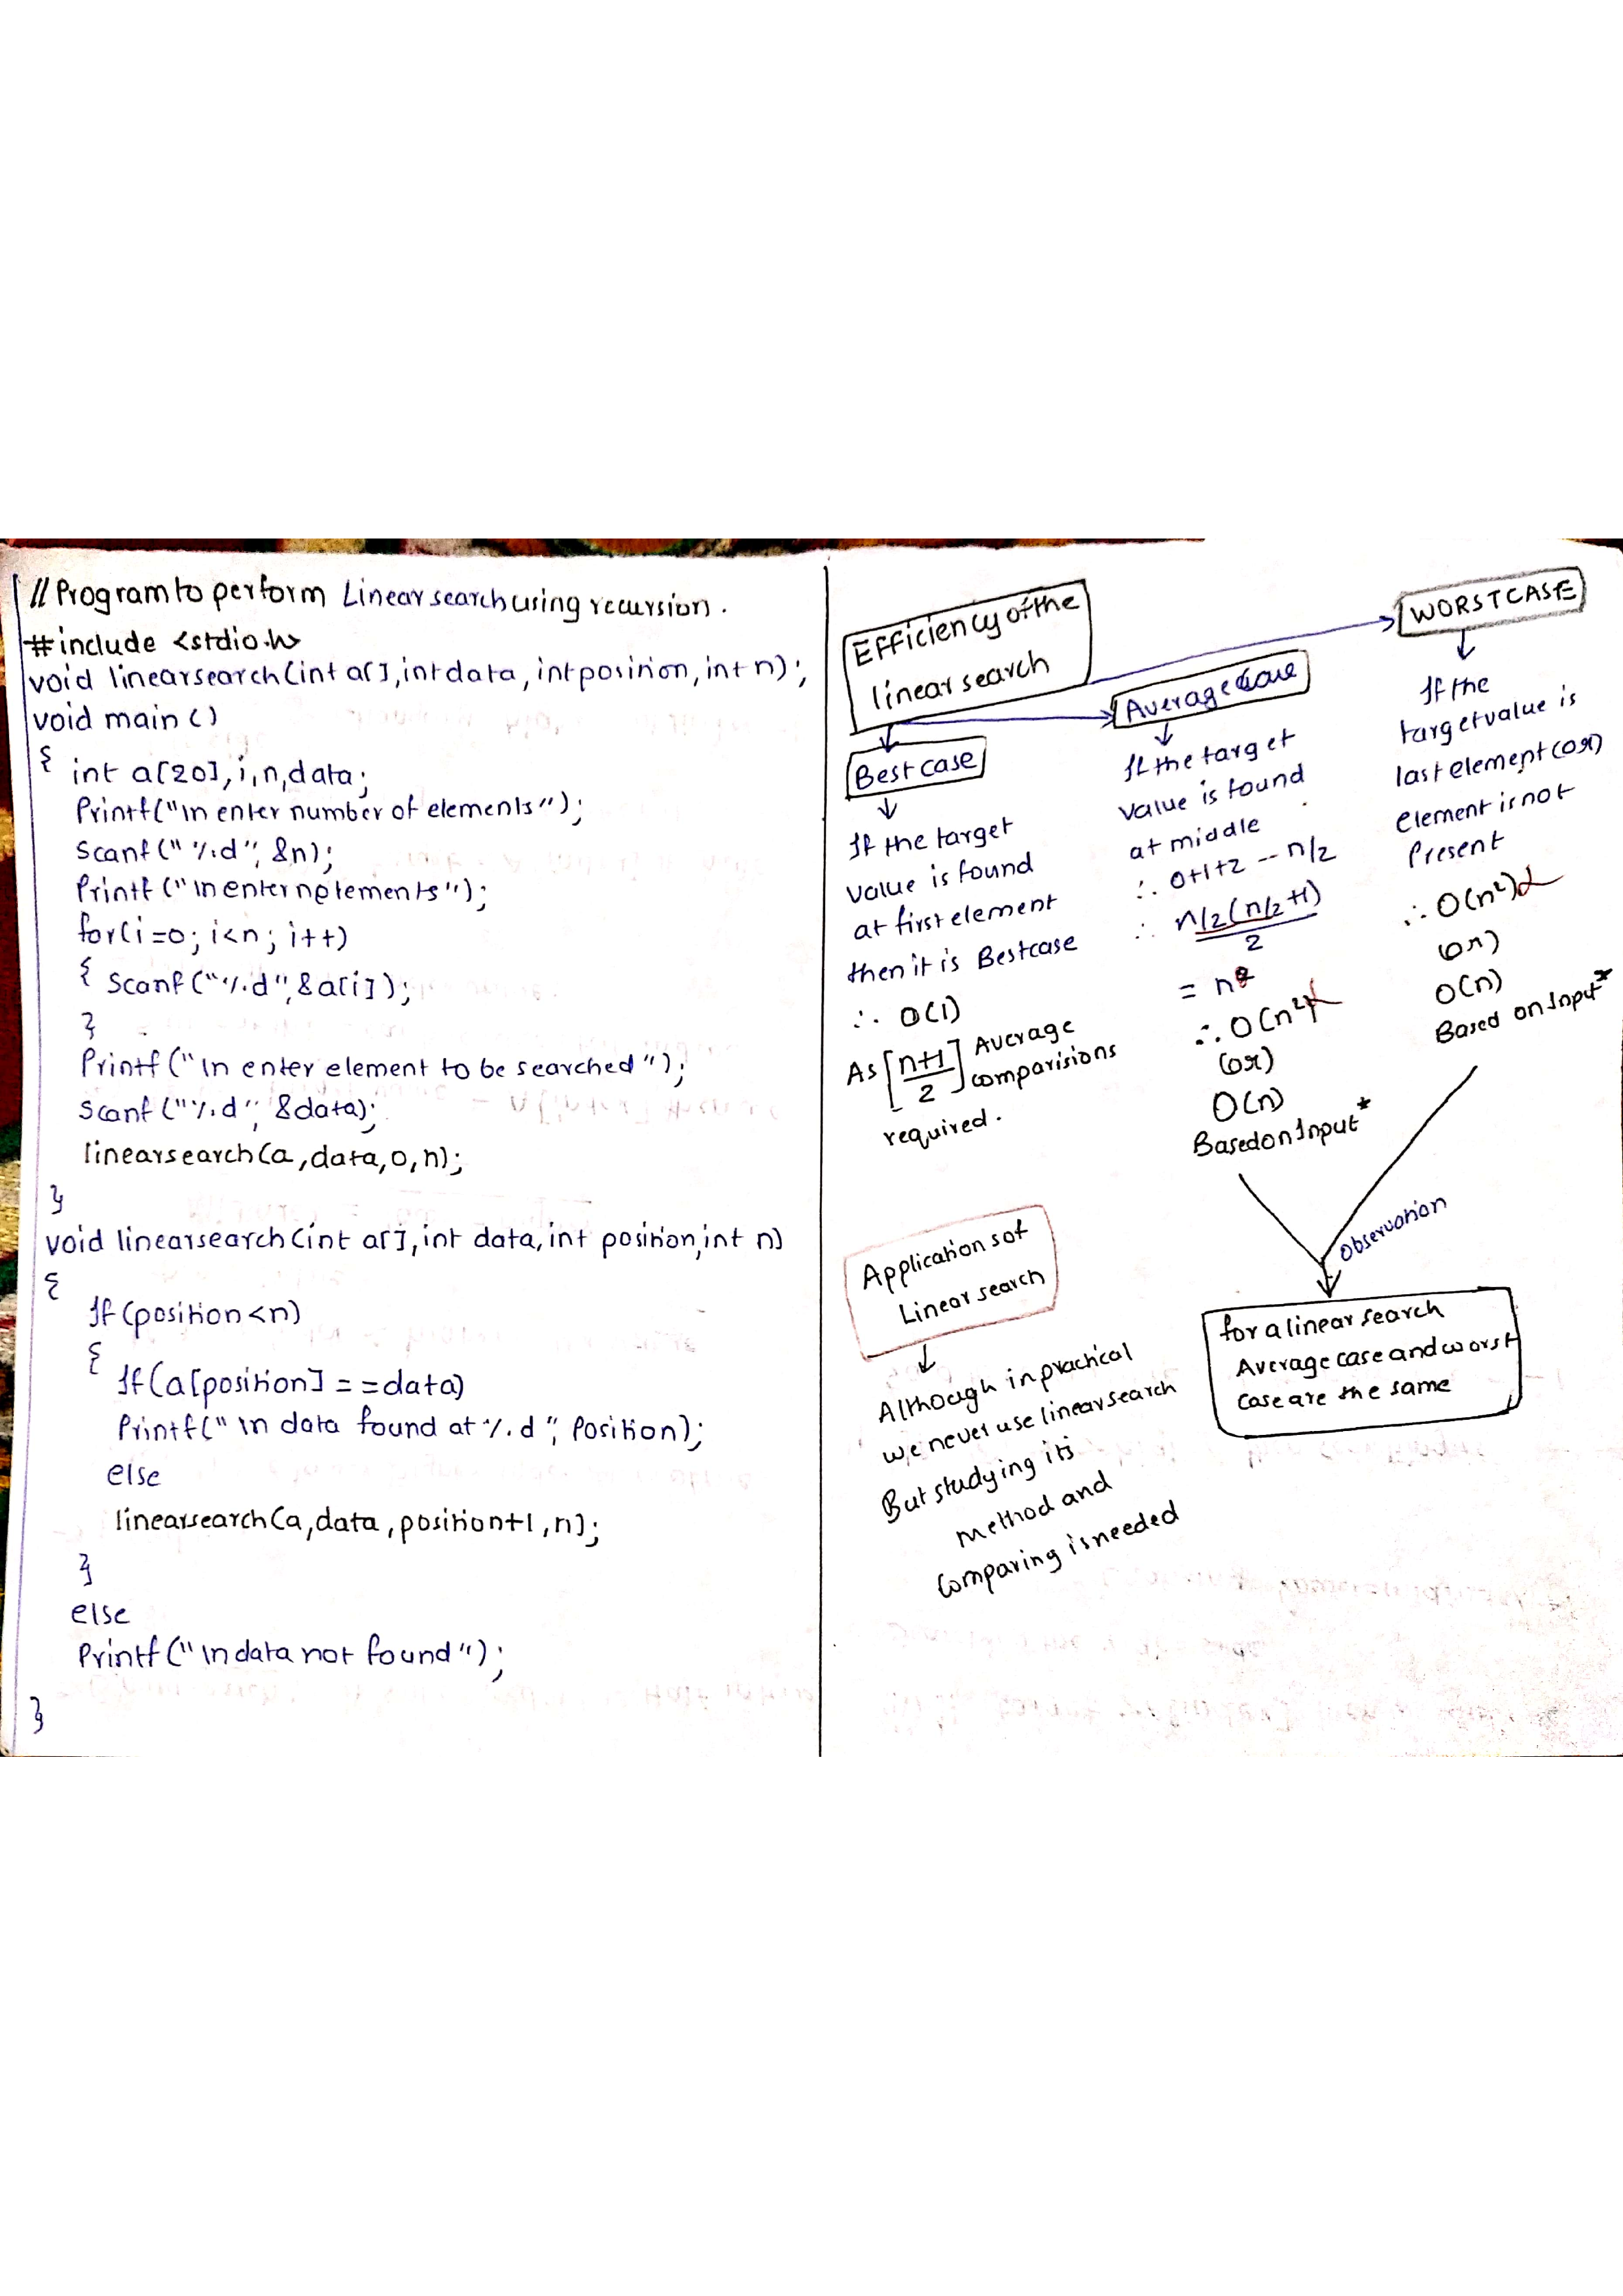 // Program to perform Linear search using recursion.
#include <stdio.h>
void linearsearch(int a[], int data, int position, int n);
void main()
{ int a[20], i, n, data;
Printf("\n enter number of elements");
Scanf("%d", &n);
Printf("\n enter n elements");
for(i=0; i<n; i++)
{ Scanf("%d", &a[i]);
}
Printf("\n enter element to be searched");
Scanf("%d", &data);
linearsearch(a, data, 0, n);
}
void linearsearch(int a[], int data, int position, int n)
{
If(position<n)
{
If(a[position] == data)
Printf("\n data found at %d", Position);
else
linearsearch(a, data, position+1, n);
}
else
Printf("\n data not found");
}
Efficiency of the
linear search
Best case
If the target
value is found
at first element
then it is Bestcase
∴ O(1)
As [n+1/2] Average
comparisions
required.
Average Case
If the target
value is found
at middle
∴ 0+1+2 -- n/2
∴ n/2(n/2+1)/2
= n²
∴ O(n²)
(or)
O(n)
Based on Input*
WORST CASE
If the
target value is
last element (or)
element is not
Present
∴ O(n²)
(or)
O(n)
Based on Input*
Observation
for a linear search
Average case and worst
case are the same
Applications of
Linear search
Although in practical
we never use linear search
But studying its
method and
comparing is needed